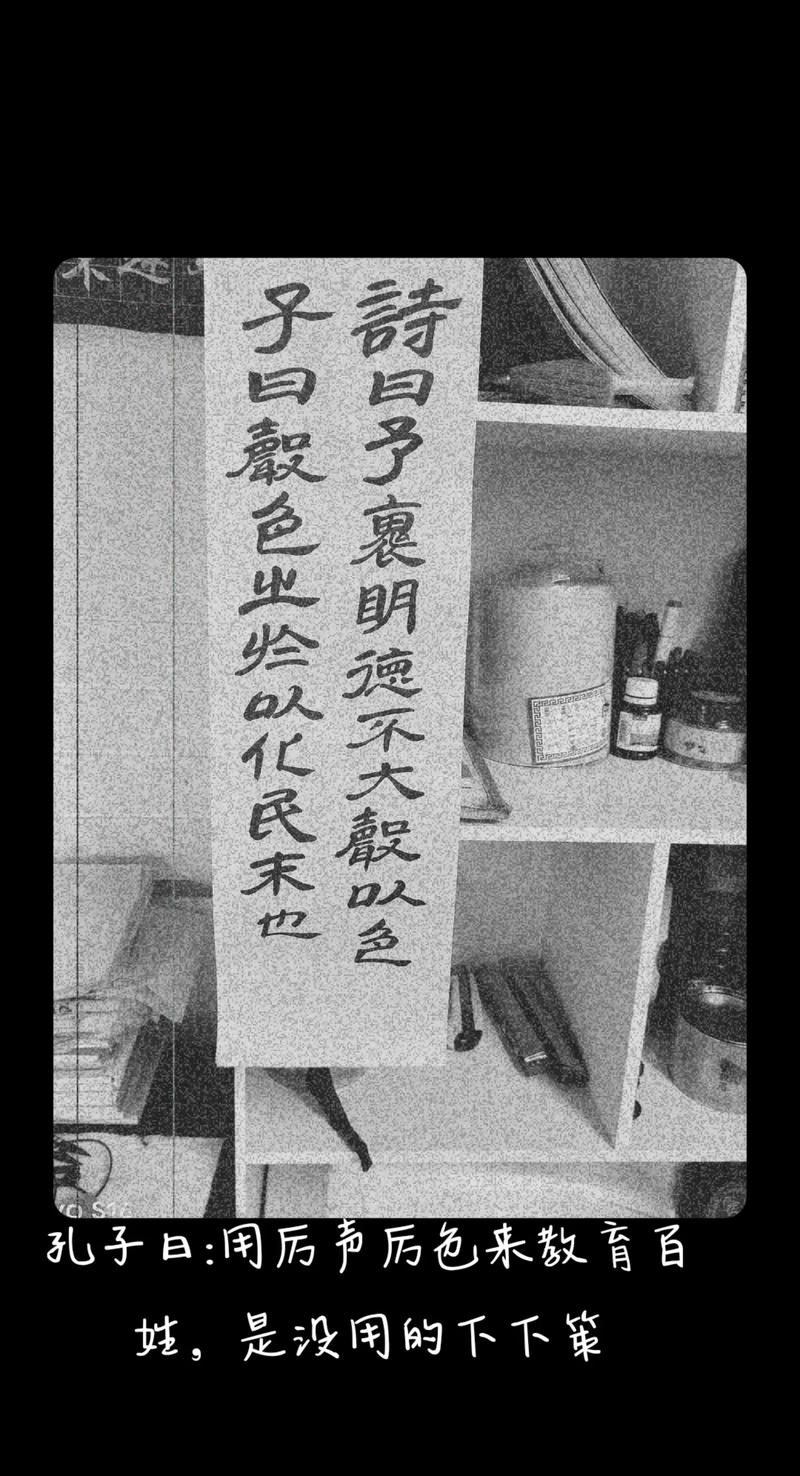 詩曰予褱明德不大聲以色
子曰聲色之於以化民末也
孔子曰:用厉声厉色来教育百
姓，是没用的下下策